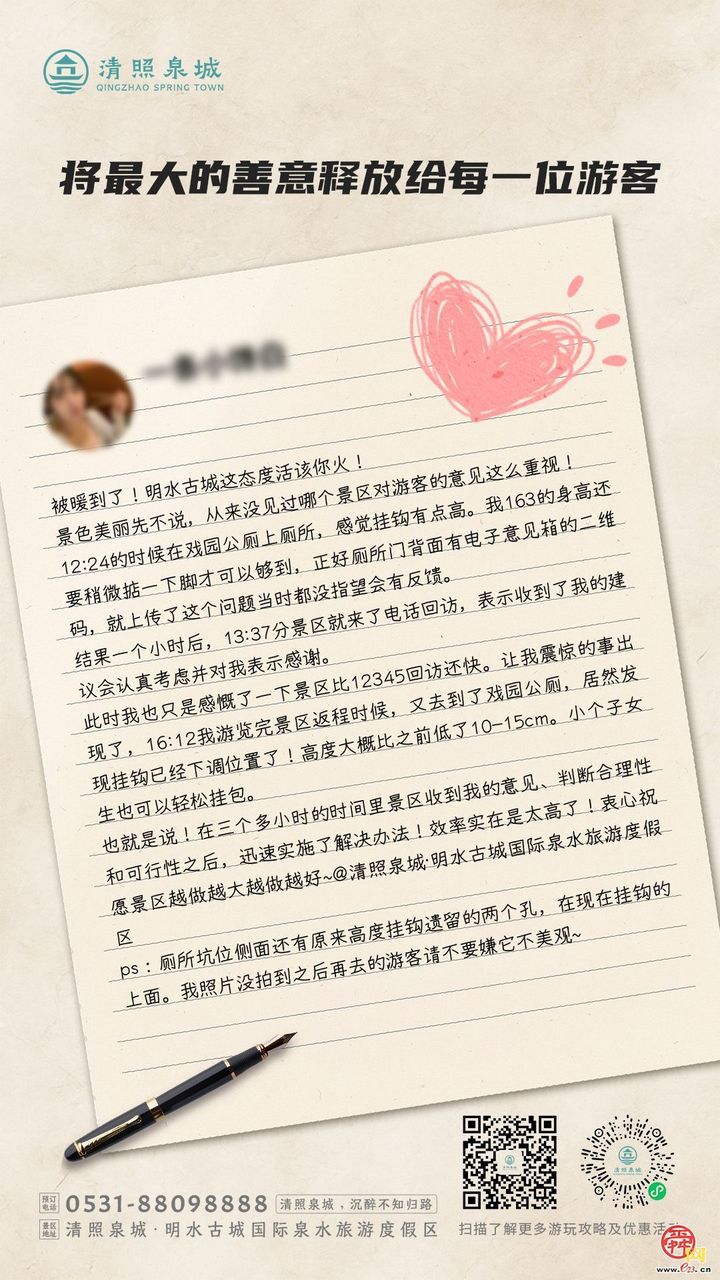 清照泉城
QINGZHAO SPRING TOWN
将最大的善意释放给每一位游客
被暖到了！明水古城这态度活该你火！
景色美丽先不说，从来没见过哪个景区对游客的意见这么重视！
12:24的时候在戏园公厕上厕所，感觉挂钩有点高。我163的身高还
要稍微掂一下脚才可以够到，正好厕所门背面有电子意见箱的二维
码，就上传了这个问题当时都没指望会有反馈。
结果一个小时后，13:37分景区就来了电话回访，表示收到了我的建
议会认真考虑并对我表示感谢。
此时我也只是感慨了一下景区比12345回访还快。让我震惊的事出
现了，16:12我游览完景区返程时候，又去到了戏园公厕，居然发
现挂钩已经下调位置了！高度大概比之前低了10-15cm。小个子女
生也可以轻松挂包。
也就是说！在三个多小时的时间里景区收到我的意见、判断合理性
和可行性之后，迅速实施了解决办法！效率实在是太高了！衷心祝
愿景区越做越大越做越好~@清照泉城·明水古城国际泉水旅游度假
区
ps：厕所坑位侧面还有原来高度挂钩遗留的两个孔，在现在挂钩的
上面。我照片没拍到之后再去的游客请不要嫌它不美观~
预订电话 0531-88098888 清照泉城，沉醉不知归路
景区地址 清照泉城·明水古城国际泉水旅游度假区
清照泉城
扫描了解更多游玩攻略及优惠活
舜网
www.e23.cn